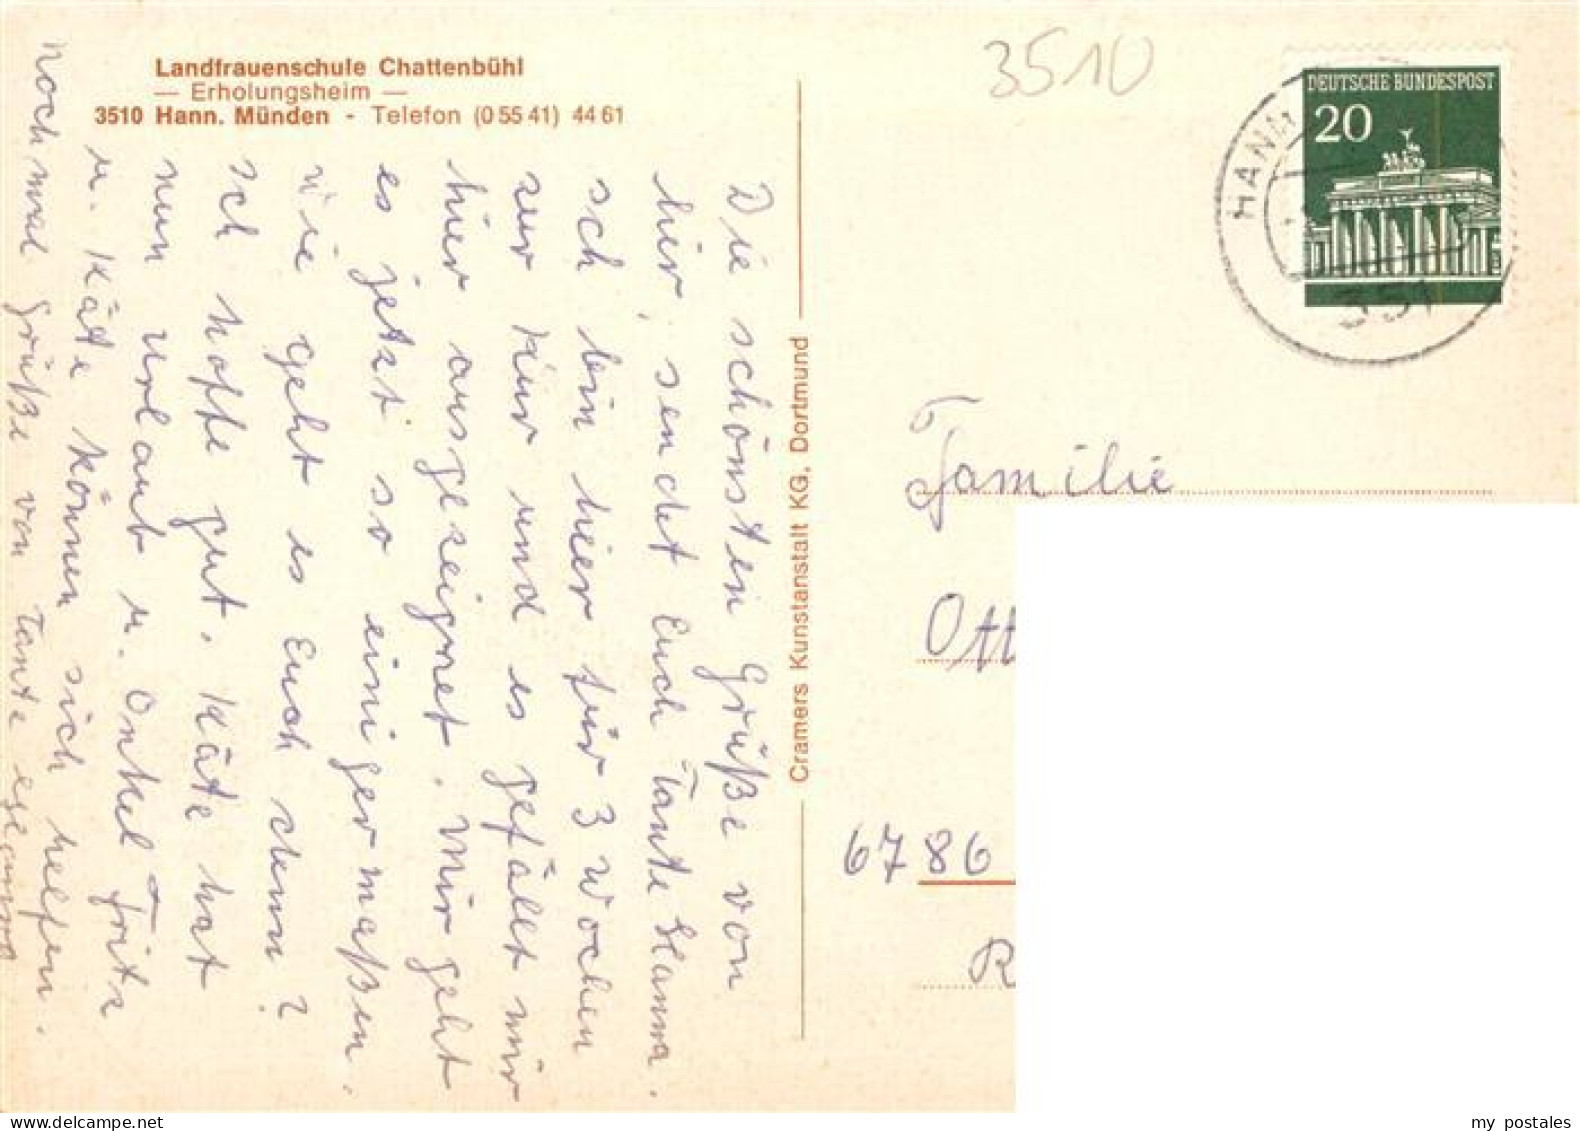 Landfrauenschule Chattenbühl
— Erholungsheim —
3510 Hann. Münden - Telefon (0 55 41) 44 61
Die schönsten Grüße von
hier, sendet Euch Tante Hanna.
Ich bin hier für 3 Wochen
zur Kur und es gefällt mir
hier ausgezeignet. Mir geht
es jetzt so einigermaßen.
Wie geht es Euch denn?
Ich hoffe gut. Käte hat
nun Urlaub u. Onkel Fritz
u. Käte können sich helfen.
nochmal Grüße von Tante
Cramers Kunstanstalt KG. Dortmund
3510
DEUTSCHE BUNDESPOST
20
HANN
351
Familie
Ott
6786
R
my postales